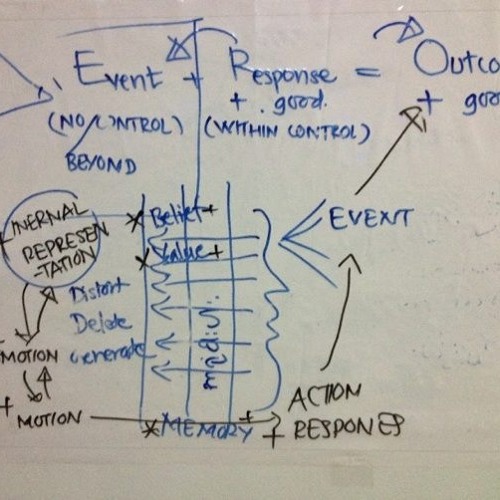 Event + Response = Outco
+ good. + goo
(NO/CONTROL) (WITHIN CONTROL)
BEYOND
INERNAL
REPRESEN
-TATION
Belief+
Value+
EVENT
Distort
Delete
Generate
MOTION
+ MOTION
MEMORY +
ACTION
+ RESPONES